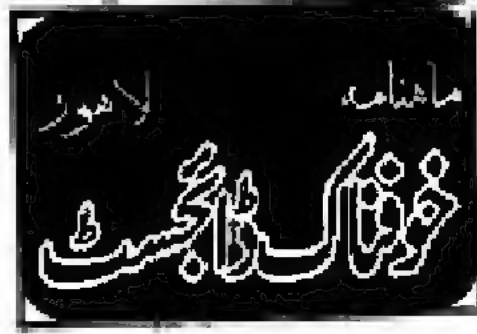 ماہنامہ لاہور
خوفناک ڈائجسٹ